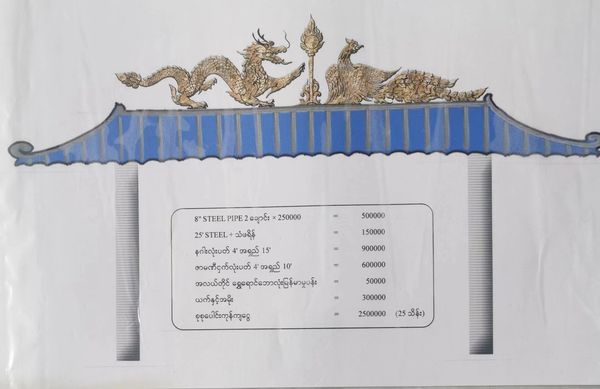 8" STEEL PIPE 2 ချောင်း × 250000 = 500000
25' STEEL + သံဖရိန် = 150000
နဂါးလုံးပတ် 4' အရှည် 15' = 900000
ဇာမဏီငှက်လုံးပတ် 4' အရှည် 10' = 600000
အလယ်တိုင် ရွှေရောင်ဘောလုံးမြန်မာမှုပန်း = 50000
ယက်နှင့်အမိုး = 300000
စုစုပေါင်းကုန်ကျငွေ = 2500000 (25 သိန်း)